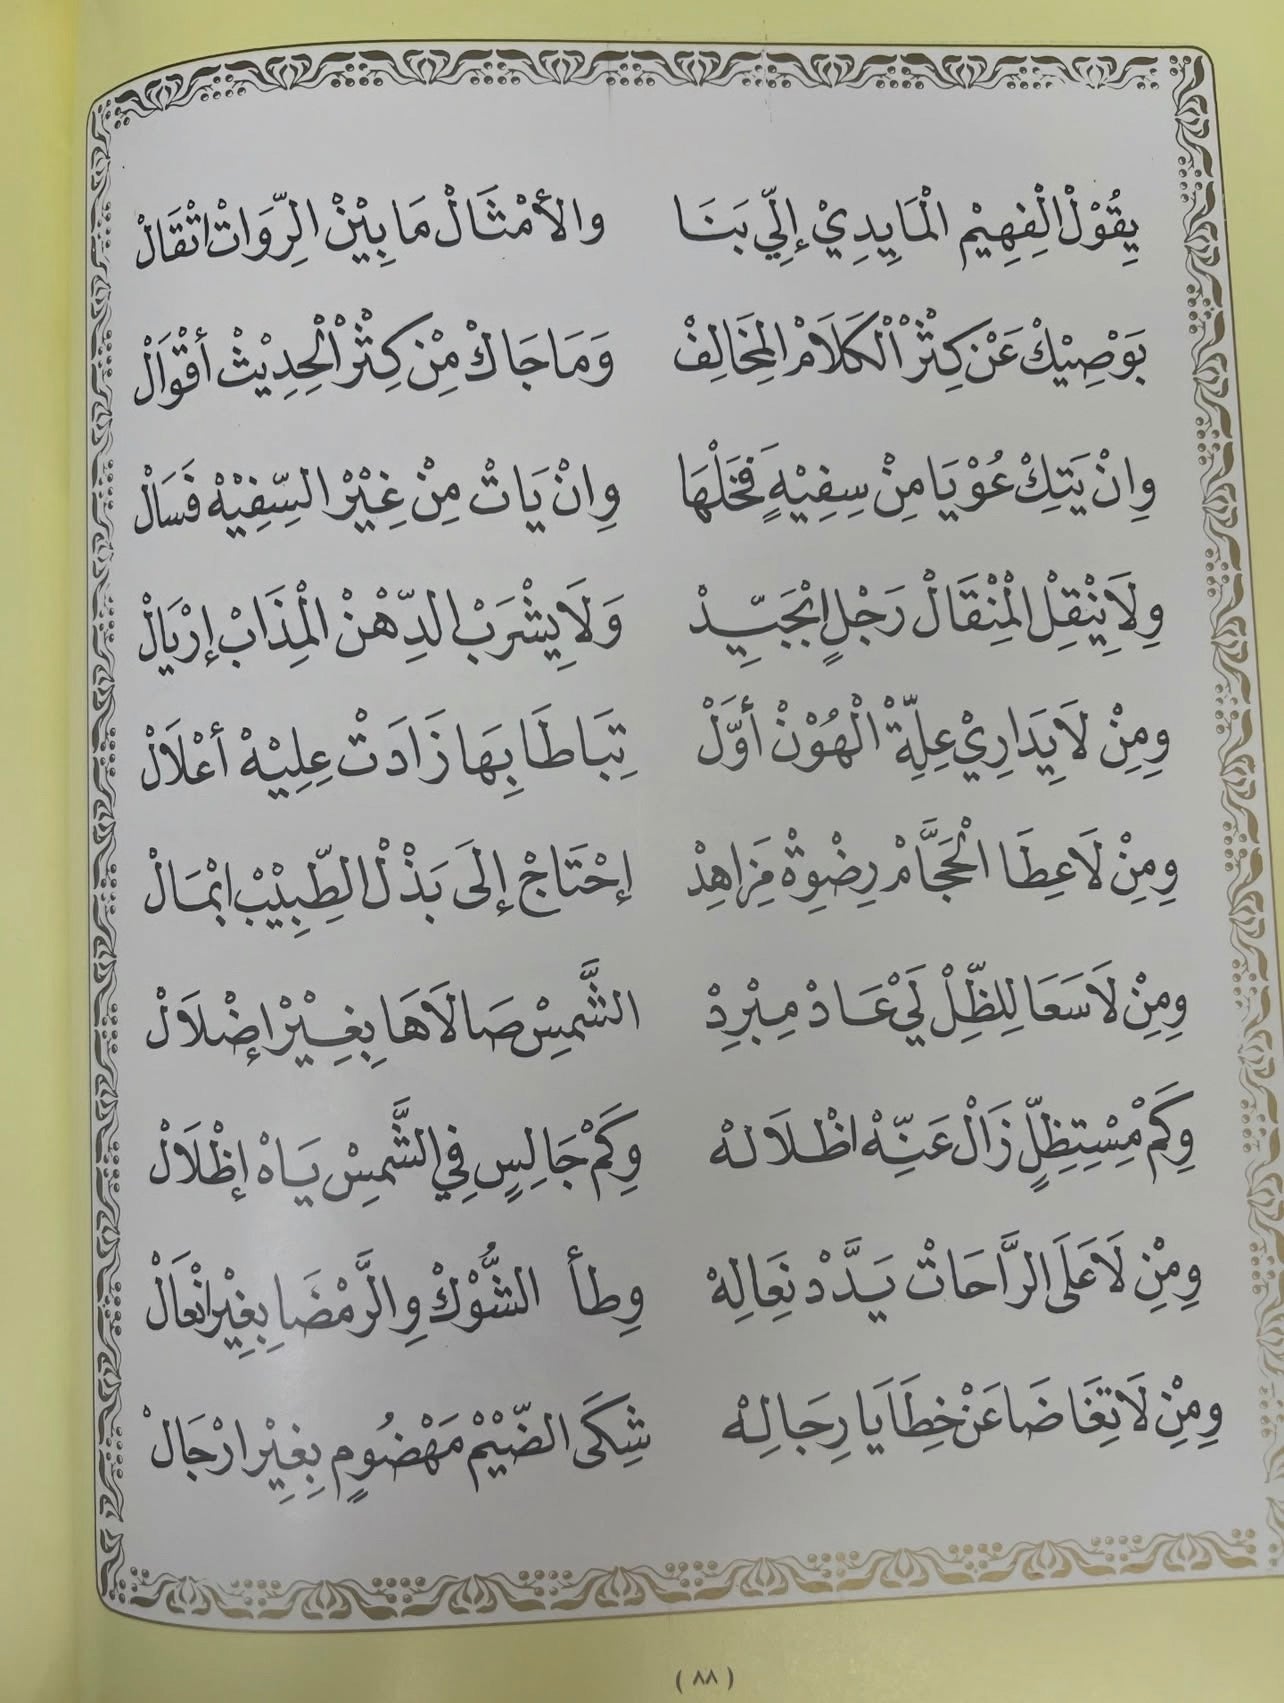 يِقُوْلْ الْفِهِيْم الْمَايِدِيْ إِلِّي بَنَا والأمْثَالْ مَا بِيْنْ الرِّوَاتْ اثْقَالْ
بَوْصِيْكْ عَنْ كِثْرْ الْكَلَامْ الْمِخَالِفْ وَمَا جَاكْ مِنْ كِثْرْ الْحِدِيْثْ أقْوَالْ
وِانْ يَتِكْ عُوْيَا مِنْ سِفِيْهٍ فَخَلْهَا وِانْ يَاتْ مِنْ غِيْرْ السِّفِيْهْ فَسَالْ
وِلَا يِنْقِلْ الْمِنْقَالْ رَجْلٍ ابْجَيِّدْ وَلَا يِشْرَبْ الدِّهْنْ الْمِذَابْ إرْيَالْ
وِمِنْ لَا يِدَارِيْ عِلِّةْ الْهُوْنْ أوَّلْ تِبَاطَا بِهَا زَادَتْ عِلِيْهْ أعْلَالْ
وِمِنْ لَا عِطَا الْحَجَّامْ رِضْوِةْ مَزَاهِدْ إحْتَاجْ إلَى بَذْلْ الطِّبِيْبْ ابْمَالْ
وِمِنْ لَا سَعَا لِلظِّلْ لَيْ عَادْ مِبْرِدْ الشَّمِسْ صَالَاهَا بِغِيْرْ إضْلَالْ
وِكَمْ مِسْتِظِلٍّ زَالْ عَنِّهْ اظْلَالهْ وِكَمْ جَالِسٍ فِي الشَّمِسْ يَاهْ إظْلَالْ
وِمِنْ لَا عَلَى الرَّاحَاتْ يَدَّدْ نِعَالِهْ وِطأ الشُّوْكْ وِالرَّمْضَا بِغِيْرْ انْعَالْ
وِمِنْ لَا تِغَاضَا عَنْ خِطَايَا رِجَالِهْ شِكَى الضّيْمْ مَهْضُومٍ بِغِيْرْ ارْجَالْ
(٨٨)